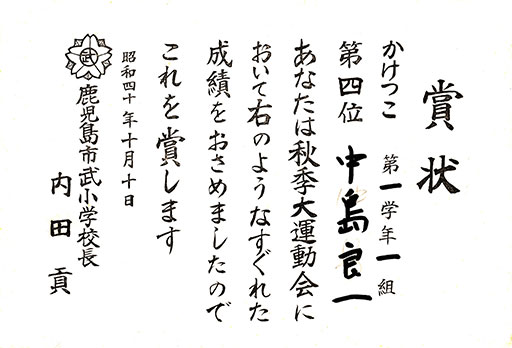 賞状
かけっこ 第一学年一組
第四位 中島良一
あなたは秋季大運動会に
おいて右のようなすぐれた
成績をおさめましたので
これを賞します
昭和四十年十月十日
武
鹿児島市武小学校長
内田貢